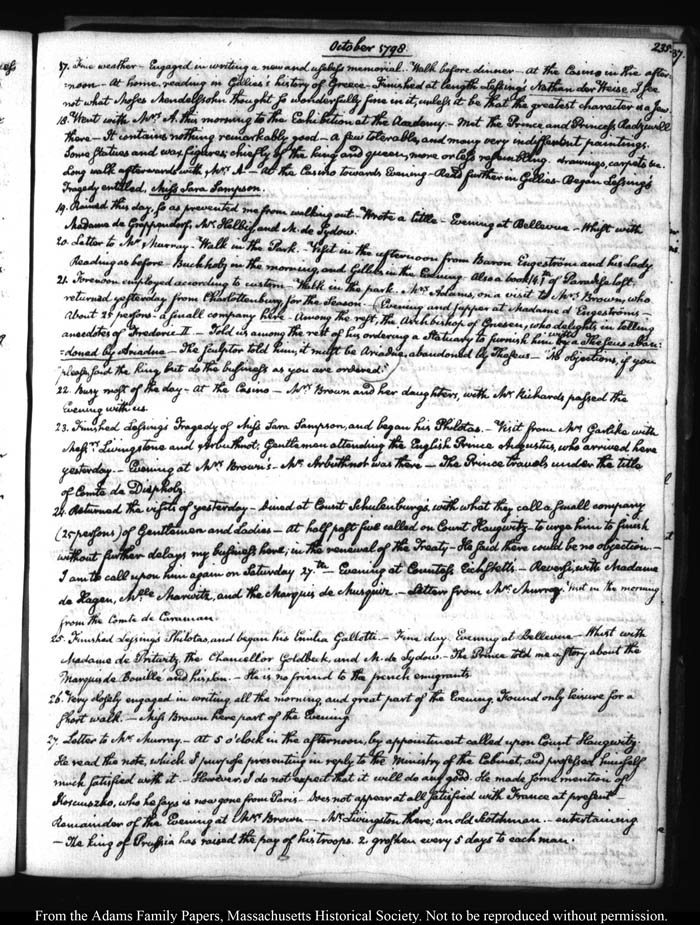 October 1798.
235. 37
17. Fine weather – Engaged in writing a new and useless memorial. Walk before dinner – At the Casino in the after-
-noon – At home, reading in Gillies's history of Greece – Finished at length Lessing's Nathan der Weise. I see
not what Moses Mendelssohn thought so wonderfully fine in it, unless it be that the greatest character is a Jew.
18. Went with Mrs. A. this morning to the Exhibition at the Academy – Met the Prince and Princess Radziwill
there – It contains nothing remarkably good – A few tolerable, and many very indifferent paintings.
Some statues and wax figures, chiefly of the king and queen, more or less resembling. drawings, carpets &c.
Long walk afterwards with Mrs. A – At the Casino towards Evening – Read further in Gillies – Began Lessing's
Tragedy entitled, Miss Sara Sampson.
19. Rained this day, so as prevented me from walking out – Wrote a little – Evening at Bellevue – Whist with
Madame de Groppendorf, Mr. Helbig, and M. de Sydow.
20. Letter to Mr. Murray – Walk in the Park. – Visit in the afternoon from Baron Engeström and his Lady.
Reading as before – Buchholz in the morning, and Gillies in the Evening. Also a book (4th) of Paradise Lost.
21. Forenoon employed according to custom – Walk in the park. Mrs. Adams, on a visit to Mrs. Brown, who
returned yesterday from Charlottenburg for the Season – (Evening and supper at Madame d'Engeström's –
About 25 persons – a small company here – Among the rest, the Archbishop of Gnesen, who delights in telling
anecdotes of Frederic II. – Told us among the rest of his ordering a Statuary to furnish him with a Theseus aban-
-doned by Ariadne – The sculptor told him, it must be Ariadne, abandoned by Theseus – "No objections, if you
please, said the king but do the business as you are ordered.")
22. Busy most of the day – At the Casino – Mrs. Brown and her daughters, with Mr. Richards passed the
Evening with us.
23. Finished Lessing's Tragedy of Miss Sara Sampson, and began his Philotas. – Visit from Mr. Garlike with
Messrs. Livingstone and Arbuthnot, Gentlemen attending the English Prince Augustus, who arrived here
yesterday – Evening at Mrs. Brown's – Mr. Arbuthnot was there – The Prince travels under the title
of Comte de Diepholz.
24. Returned the visits of yesterday – dined at Count Schulenburg's, with what they call a small company
(25 persons) of Gentlemen and Ladies – At half past five called on Count Haugwitz – to urge him to finish
without further delays my business here, in the renewal of the Treaty – He said there could be no objection –
I am to call upon him again on Saturday 27th – Evening at Countess Eichstett's – Reversis, with Madame
de Hagen, Mlle. Marwitz, and the Marquis de Musquiz. – Letter from Mr. Murray. Met in the morning
from the Comte de Caraman.
25. Finished Lessing's Philotas, and began his Emilia Galotti – Fine day. Evening at Bellevue – Whist with
Madame de Pritwitz, the Chancellor Goldbeck, and M. de Sydow – The Prince told me a story about the
Marquis de Bouillé and his son. – He is no friend to the french emigrants
26. Very closely engaged in writing all the morning, and great part of the Evening. Found only leisure for a
short walk. – Miss Brown here part of the Evening
27. Letter to Mr. Murray – At 5 o'clock in the afternoon, by appointment called upon Count Haugwitz.
He read the note, which I purpose presenting in reply to the Ministry of the Cabinet, and professed himself
much satisfied with it – However, I do not expect that it will do any good. He made some mention of
Kosciuszko, who he says is now gone from Paris – Does not appear at all satisfied with France at present –
Remainder of the Evening at Mrs. Brown – Mr. Livingston there; an old Scotchman – entertaining
– The king of Prussia has raised the pay of his troops. 2. groshen every 5 days to each man.
From the Adams Family Papers, Massachusetts Historical Society. Not to be reproduced without permission.